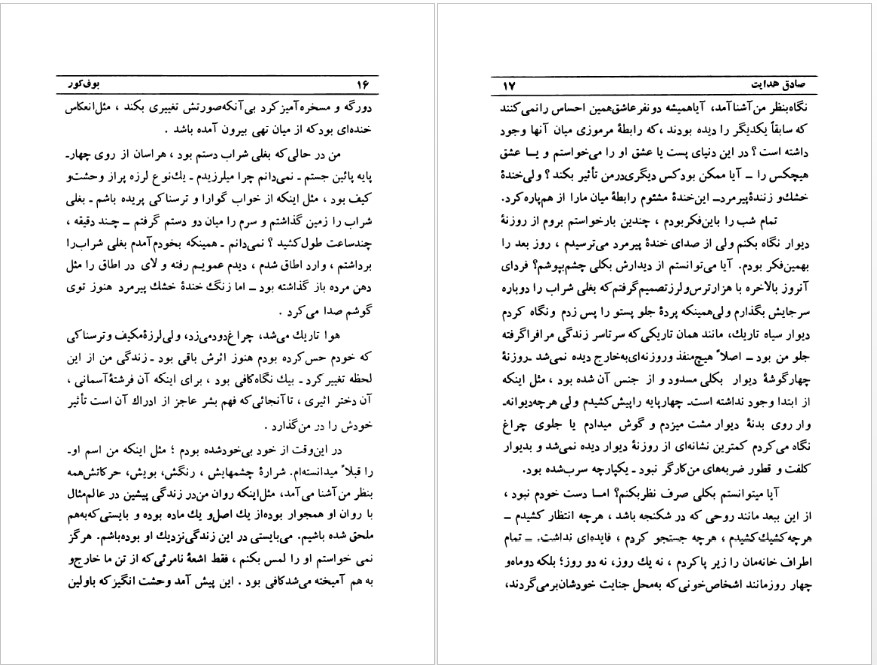 ۱۶ بوف‌کور
دورگه و مسخره‌آمیز کرد بی‌آنکه صورتش تغییری بکند ، مثل انعکاس
خنده‌ای بود که از میان تهی بیرون آمده باشد .
من در حالی‌که بغلی شراب دستم بود ، هراسان از روی چهارـ
پایه پائین جستم ـ نمی‌دانم چرا میلرزیدم ـ یك نوع لرزه پر از وحشت و
کیف بود ، مثل اینکه از خواب گوارا و ترسناکی پریده باشم ـ بغلی
شراب را زمین گذاشتم و سرم را میان دو دستم گرفتم ـ چند دقیقه ،
چند ساعت طول کشید ؟ نمی‌دانم ـ همینکه بخودم آمدم بغلی شراب را
برداشتم ، وارد اطاق شدم ، دیدم عمویم رفته و لای در اطاق را مثل
دهن مرده باز گذاشته بود ـ اما زنگ خندهٔ خشك پیرمرد هنوز توی
گوشم صدا می‌کرد .
هوا تاریك می‌شد، چراغ دود می‌زد، ولی لرزهٔ مکیف و ترسناکی
که خودم حس کرده بودم هنوز اثرش باقی بود ـ زندگی من از این
لحظه تغییر کرد ـ بیك نگاه کافی بود ، برای اینکه آن فرشتهٔ آسمانی ،
آن دختر اثیری ، تا آنجائی که فهم بشر عاجز از ادراك آن است تأثیر
خودش را در من گذارد .
در این‌وقت از خود بی‌خود شده بودم ؛ مثل اینکه من اسم اوـ
را قبلاً میدانسته‌ام. شرارهٔ چشمهایش ، رنگش، بویش، حرکاتش همه
بنظر من آشنا می‌آمد، مثل اینکه روان من در زندگی پیشین در عالم مثال
با روان او همجوار بوده از یك اصل و یك ماده بوده و بایستی که به‌هم
ملحق شده باشیم. می‌بایستی در این زندگی نزدیك او بوده‌باشم. هرگز
نمی خواستم او را لمس بکنم ، فقط اشعهٔ نامرئی که از تن ما خارج و
به هم آمیخته می‌شد کافی بود . این پیش آمد وحشت انگیز که باولین
صادق هدایت ۱۷
نگاه بنظر من آشنا آمد، آیا همیشه دو نفر عاشق همین احساس را نمی کنند
که سابقاً یکدیگر را دیده بودند ، که رابطهٔ مرموزی میان آنها وجود
داشته است ؟ در این دنیای پست یا عشق او را می‌خواستم و یـا عشق
هیچکس را ـ آیا ممکن بود کس دیگری در من تأثیر بکند ؟ ولی خندهٔ
خشك و زنندهٔ پیرمرد ـ این خندهٔ مشئوم رابطهٔ میان ما را از هم پاره کرد.
تمام شب را باین فکر بودم ، چندین بار خواستم بروم از روزنهٔ
دیوار نگاه بکنم ولی از صدای خندهٔ پیرمرد می‌ترسیدم ، روز بعد را
بهمین فکر بودم. آیا می‌توانستم از دیدارش بکلی چشم بپوشم؟ فردای
آنروز بالاخره با هزار ترس و لرز تصمیم گرفتم که بغلی شراب را دوباره
سر جایش بگذارم ولی همینکه پردهٔ جلو پستو را پس زدم و نگاه کردم
دیوار سیاه تاریك، مانند همان تاریکی که سرتاسر زندگی مرا فرا گرفته
جلو من بود ـ اصلاً هیچ منفذ و روزنه‌ای به‌خارج دیده نمی‌شد ـ روزنهٔ
چهارگوشهٔ دیوار بکلی مسدود و از جنس آن شده بود ، مثل اینکه
از ابتدا وجود نداشته است ـ چهارپایه را پیش کشیدم ولی هرچه دیوانه‌ـ
وار روی بدنهٔ دیوار مشت میزدم و گوش میدادم یا جلوی چراغ
نگاه می‌کردم کمترین نشانه‌ای از روزنهٔ دیوار دیده نمی‌شد و بدیوار
کلفت و قطور ضربه‌های من کارگر نبود ـ یکپارچه سرب شده بود.
آیا میتوانستم بکلی صرف نظر بکنم؟ امـا دست خودم نبود ،
از این ببعد مانند روحی که در شکنجه باشد ، هرچه انتظار کشیدم ـ
هرچه کشیك کشیدم ، هرچه جستجو کردم ، فایده‌ای نداشت. ـ تمام
اطراف خانه‌مان را زیر پا کردم ، نه یك روز، نه دو روز؛ بلکه دو ماه و
چهار روز مانند اشخاص خونی که به‌محل جنایت خودشان برمی‌گردند،